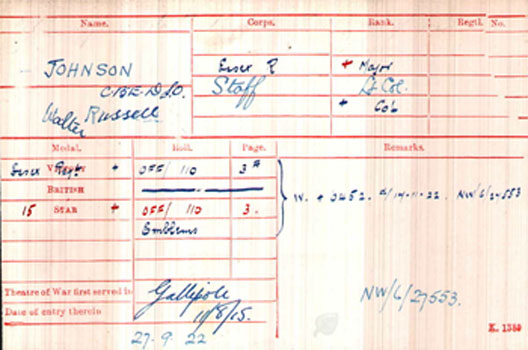 Name. Corps. Rank. Regtl. No.
JOHNSON Essex R + Major
C.B.E. D.S.O. Staff Lt Col.
Walter Russell + Col
Medal. Roll. Page. Remarks.
Essex Regt VICTORY + OFF/ 110 3
BRITISH
15 STAR + OFF/ 110 3.
Emblems
W. + 0452. 14-11-22. NW/6/27553
Theatre of War first served in Gallipoli
Date of entry therein /8/15.
NW/6/27553.
27-9-22
K. 1380